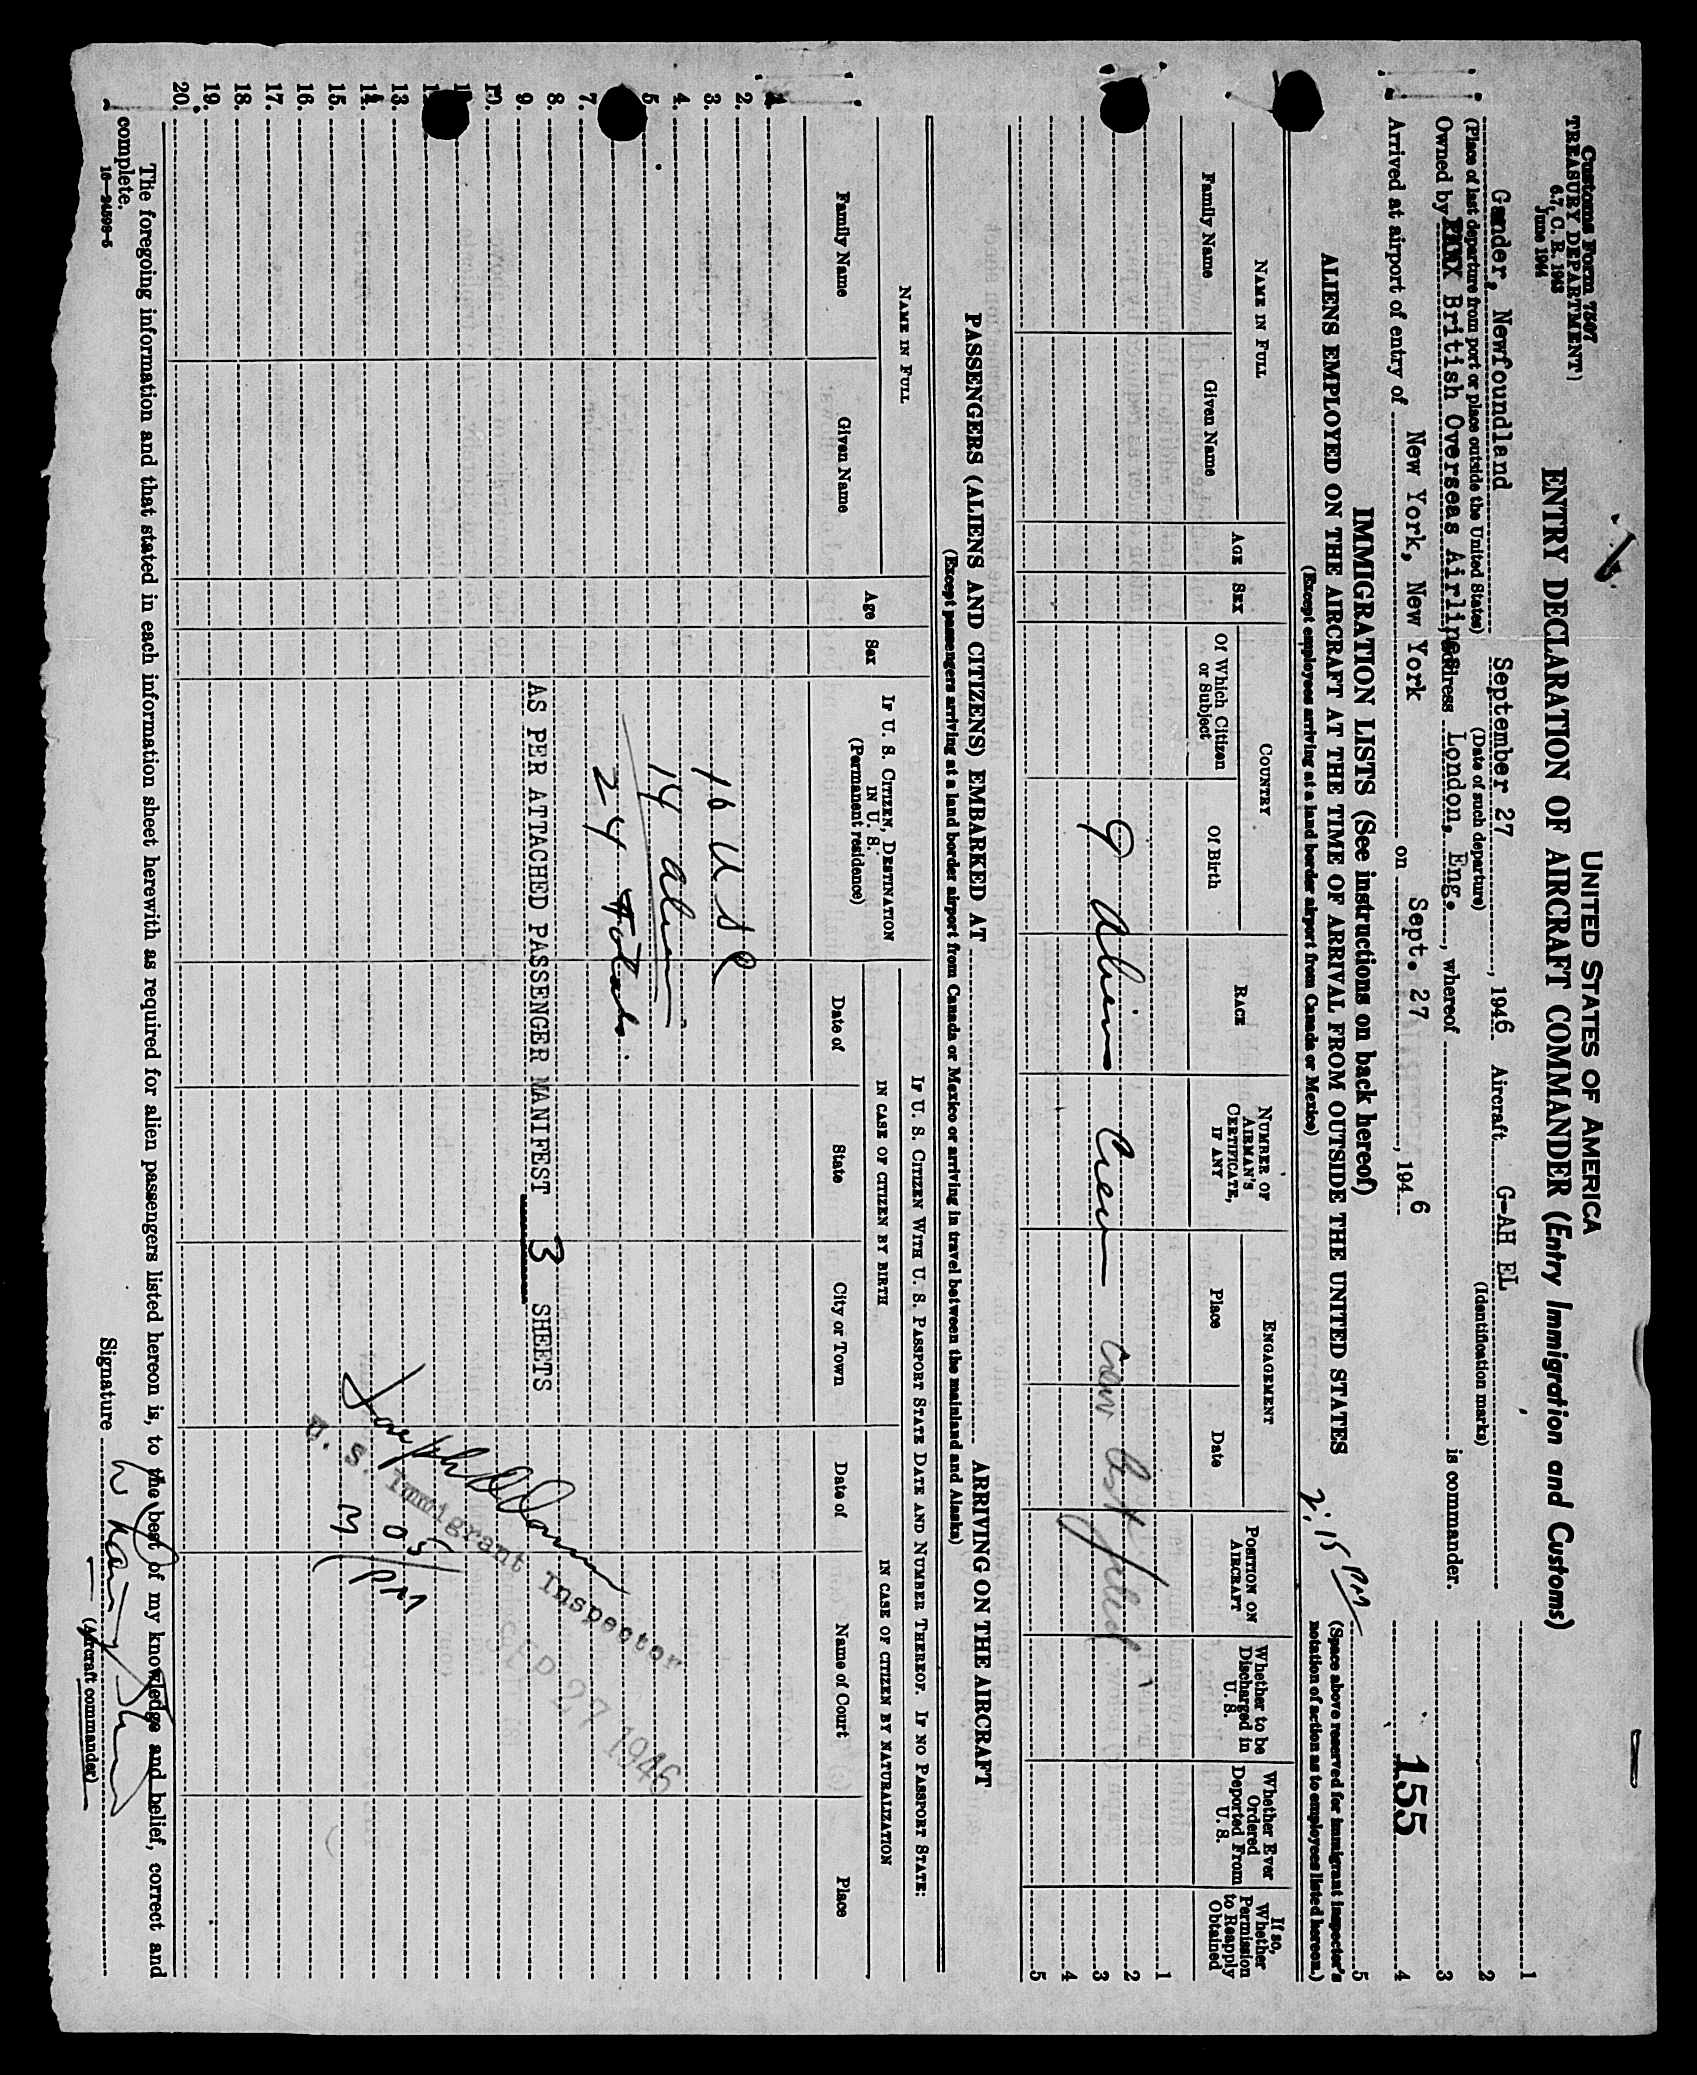 Customs Form 7507
TREASURY DEPARTMENT
6.7, C. R. 1943
June 1944
UNITED STATES OF AMERICA
ENTRY DECLARATION OF AIRCRAFT COMMANDER (Entry Immigration and Customs)
Gander, Newfoundland September 27, 1946 Aircraft G-AH EL
(Place of last departure from port or place outside the United States) (Date of such departure) (Identification marks)
Owned by British Overseas Airlines Address London, Eng., whereof is commander.
Arrived at airport of entry of New York, New York on Sept. 27, 1946
1
2
3
155 4
2:15 PM 5
IMMIGRATION LISTS (See instructions on back hereof)
(Space above reserved for immigrant inspector's notation of action as to employees listed hereon.)
ALIENS EMPLOYED ON THE AIRCRAFT AT THE TIME OF ARRIVAL FROM OUTSIDE THE UNITED STATES
(Except employees arriving at a land border airport from Canada or Mexico)
NAME IN FULL
Family Name
Given Name
AGE
SEX
COUNTRY
Of Which Citizen or Subject
Of Birth
RACE
NUMBER OF AIRMAN'S CERTIFICATE, IF ANY
ENGAGEMENT
Place
Date
POSITION ON AIRCRAFT
Whether to be Discharged in U. S.
Whether Ever Ordered Deported From U. S.
If so, Whether Permission to Reapply Obtained
1
2
9 Aliens Crew Crew list filed 3
4
5
PASSENGERS (ALIENS AND CITIZENS) EMBARKED AT ARRIVING ON THE AIRCRAFT
(Except passengers arriving at a land border airport from Canada or Mexico or arriving in travel between the mainland and Alaska)
NAME IN FULL
Family Name
Given Name
Age
Sex
IF U. S. CITIZEN, DESTINATION IN U. S.
(Permanent residence)
IF U. S. CITIZEN WITH U. S. PASSPORT STATE DATE AND NUMBER THEREOF. IF NO PASSPORT STATE:
IN CASE OF CITIZEN BY BIRTH
Date of
State
City or Town
IN CASE OF CITIZEN BY NATURALIZATION
Date of
Name of Court
Place
1.
2.
3. 10 USC
4.
5. 14 alien
7. 24 Total
8.
9. AS PER ATTACHED PASSENGER MANIFEST 3 SHEETS
10.
13.
14.
15.
16.
17.
18.
19.
20.
U. S. Immigrant Inspector
27 1946
3 05 PM
The foregoing information and that stated in each information sheet herewith as required for alien passengers listed hereon is, to the best of my knowledge and belief, correct and
complete.
16—24598-5
Signature
(Aircraft commander)